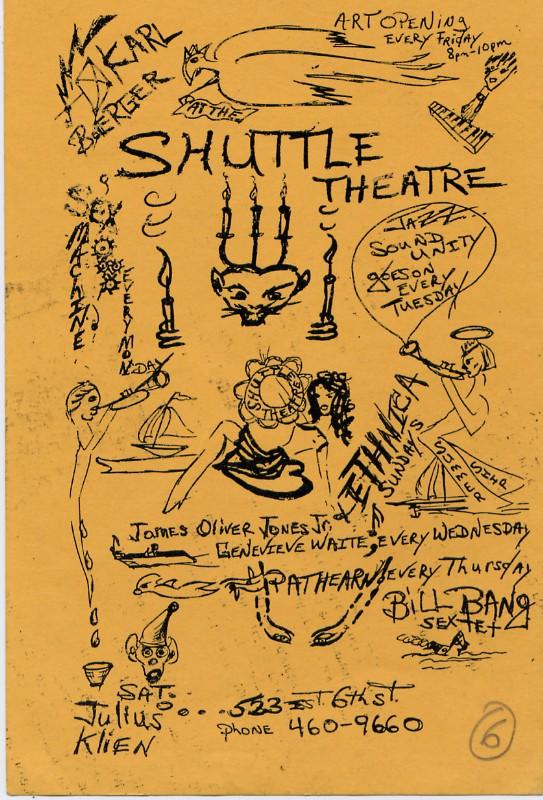 ART OPENING
EVERY FRIDAY
8pm-10pm
KARL
BERGER
AT THE
SHUTTLE
THEATRE
SEX
MACHINE!
EVERY MONDAY
JAZZ
SOUND
UNITY
goes on
EVERY
TUESDAY
SHUTTLE
THEATRE
ETHNICA
SUNDAYS
STEEER
SHIP
JAMES OLIVER JONES Jr. &
GENEVIEVE WAITE, EVERY WEDNESDAY
PATHEARN EVERY Thursday
BILL BANG
SEXTET
SAT.
Julius
KLIEN
523 EST. 6th ST.
PHONE 460-9660
6